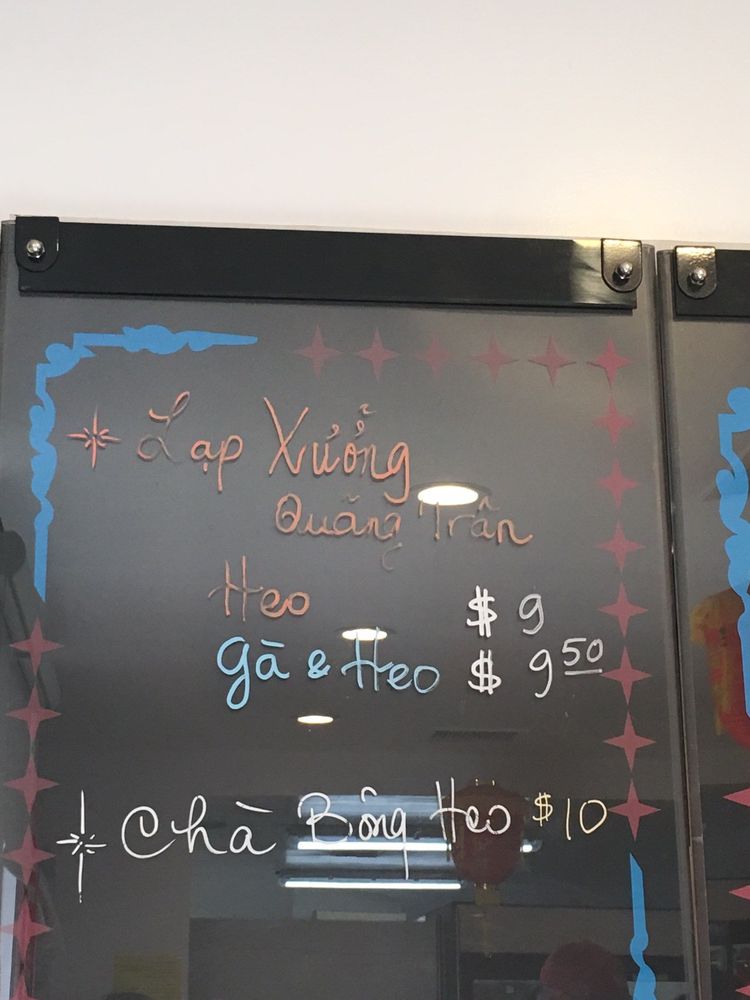 Lạp Xưởng
Quãng Trân
Heo $ 9
gà & Heo $ 9 50
Chà Bông Heo $10